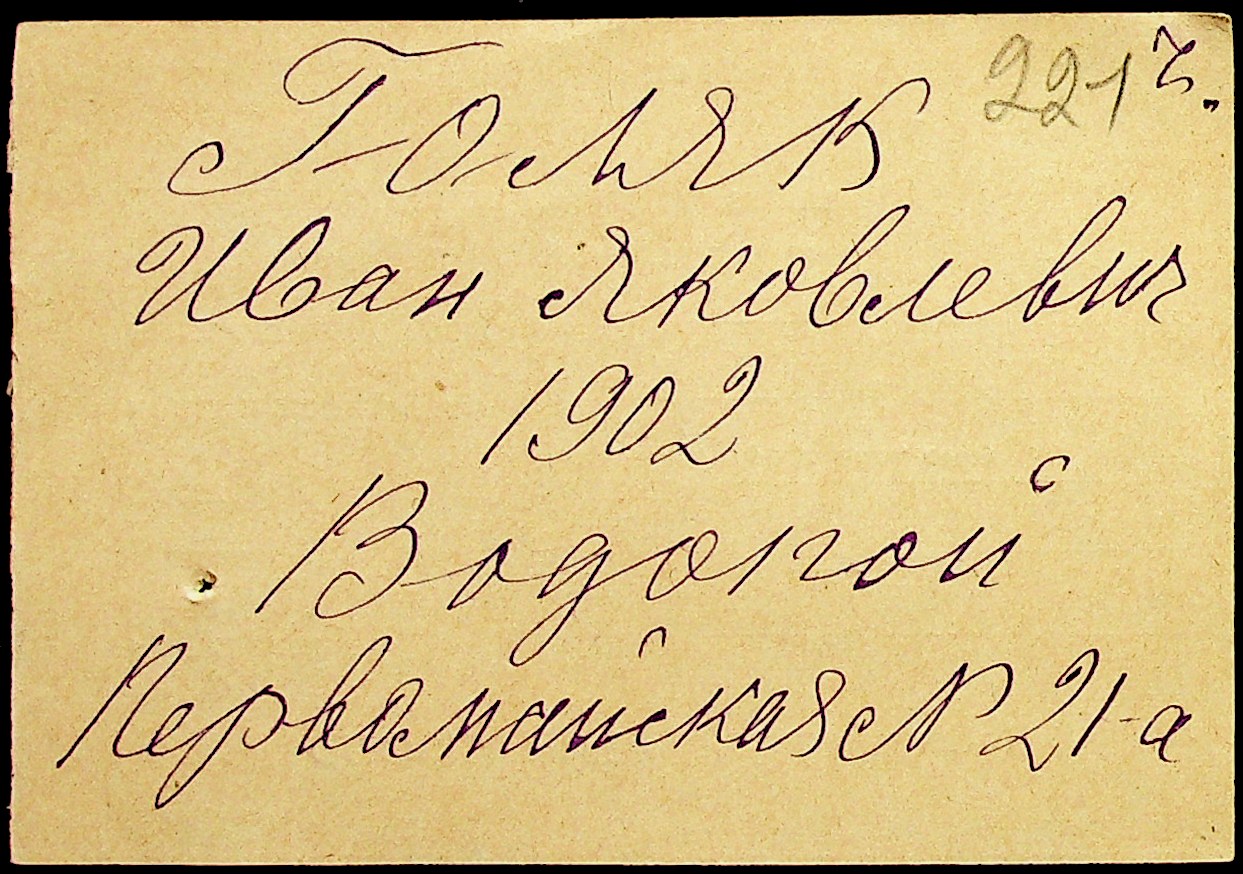 221
Голяк
Иван Яковлевич
1902
Водопой
Первомайская № 21-а